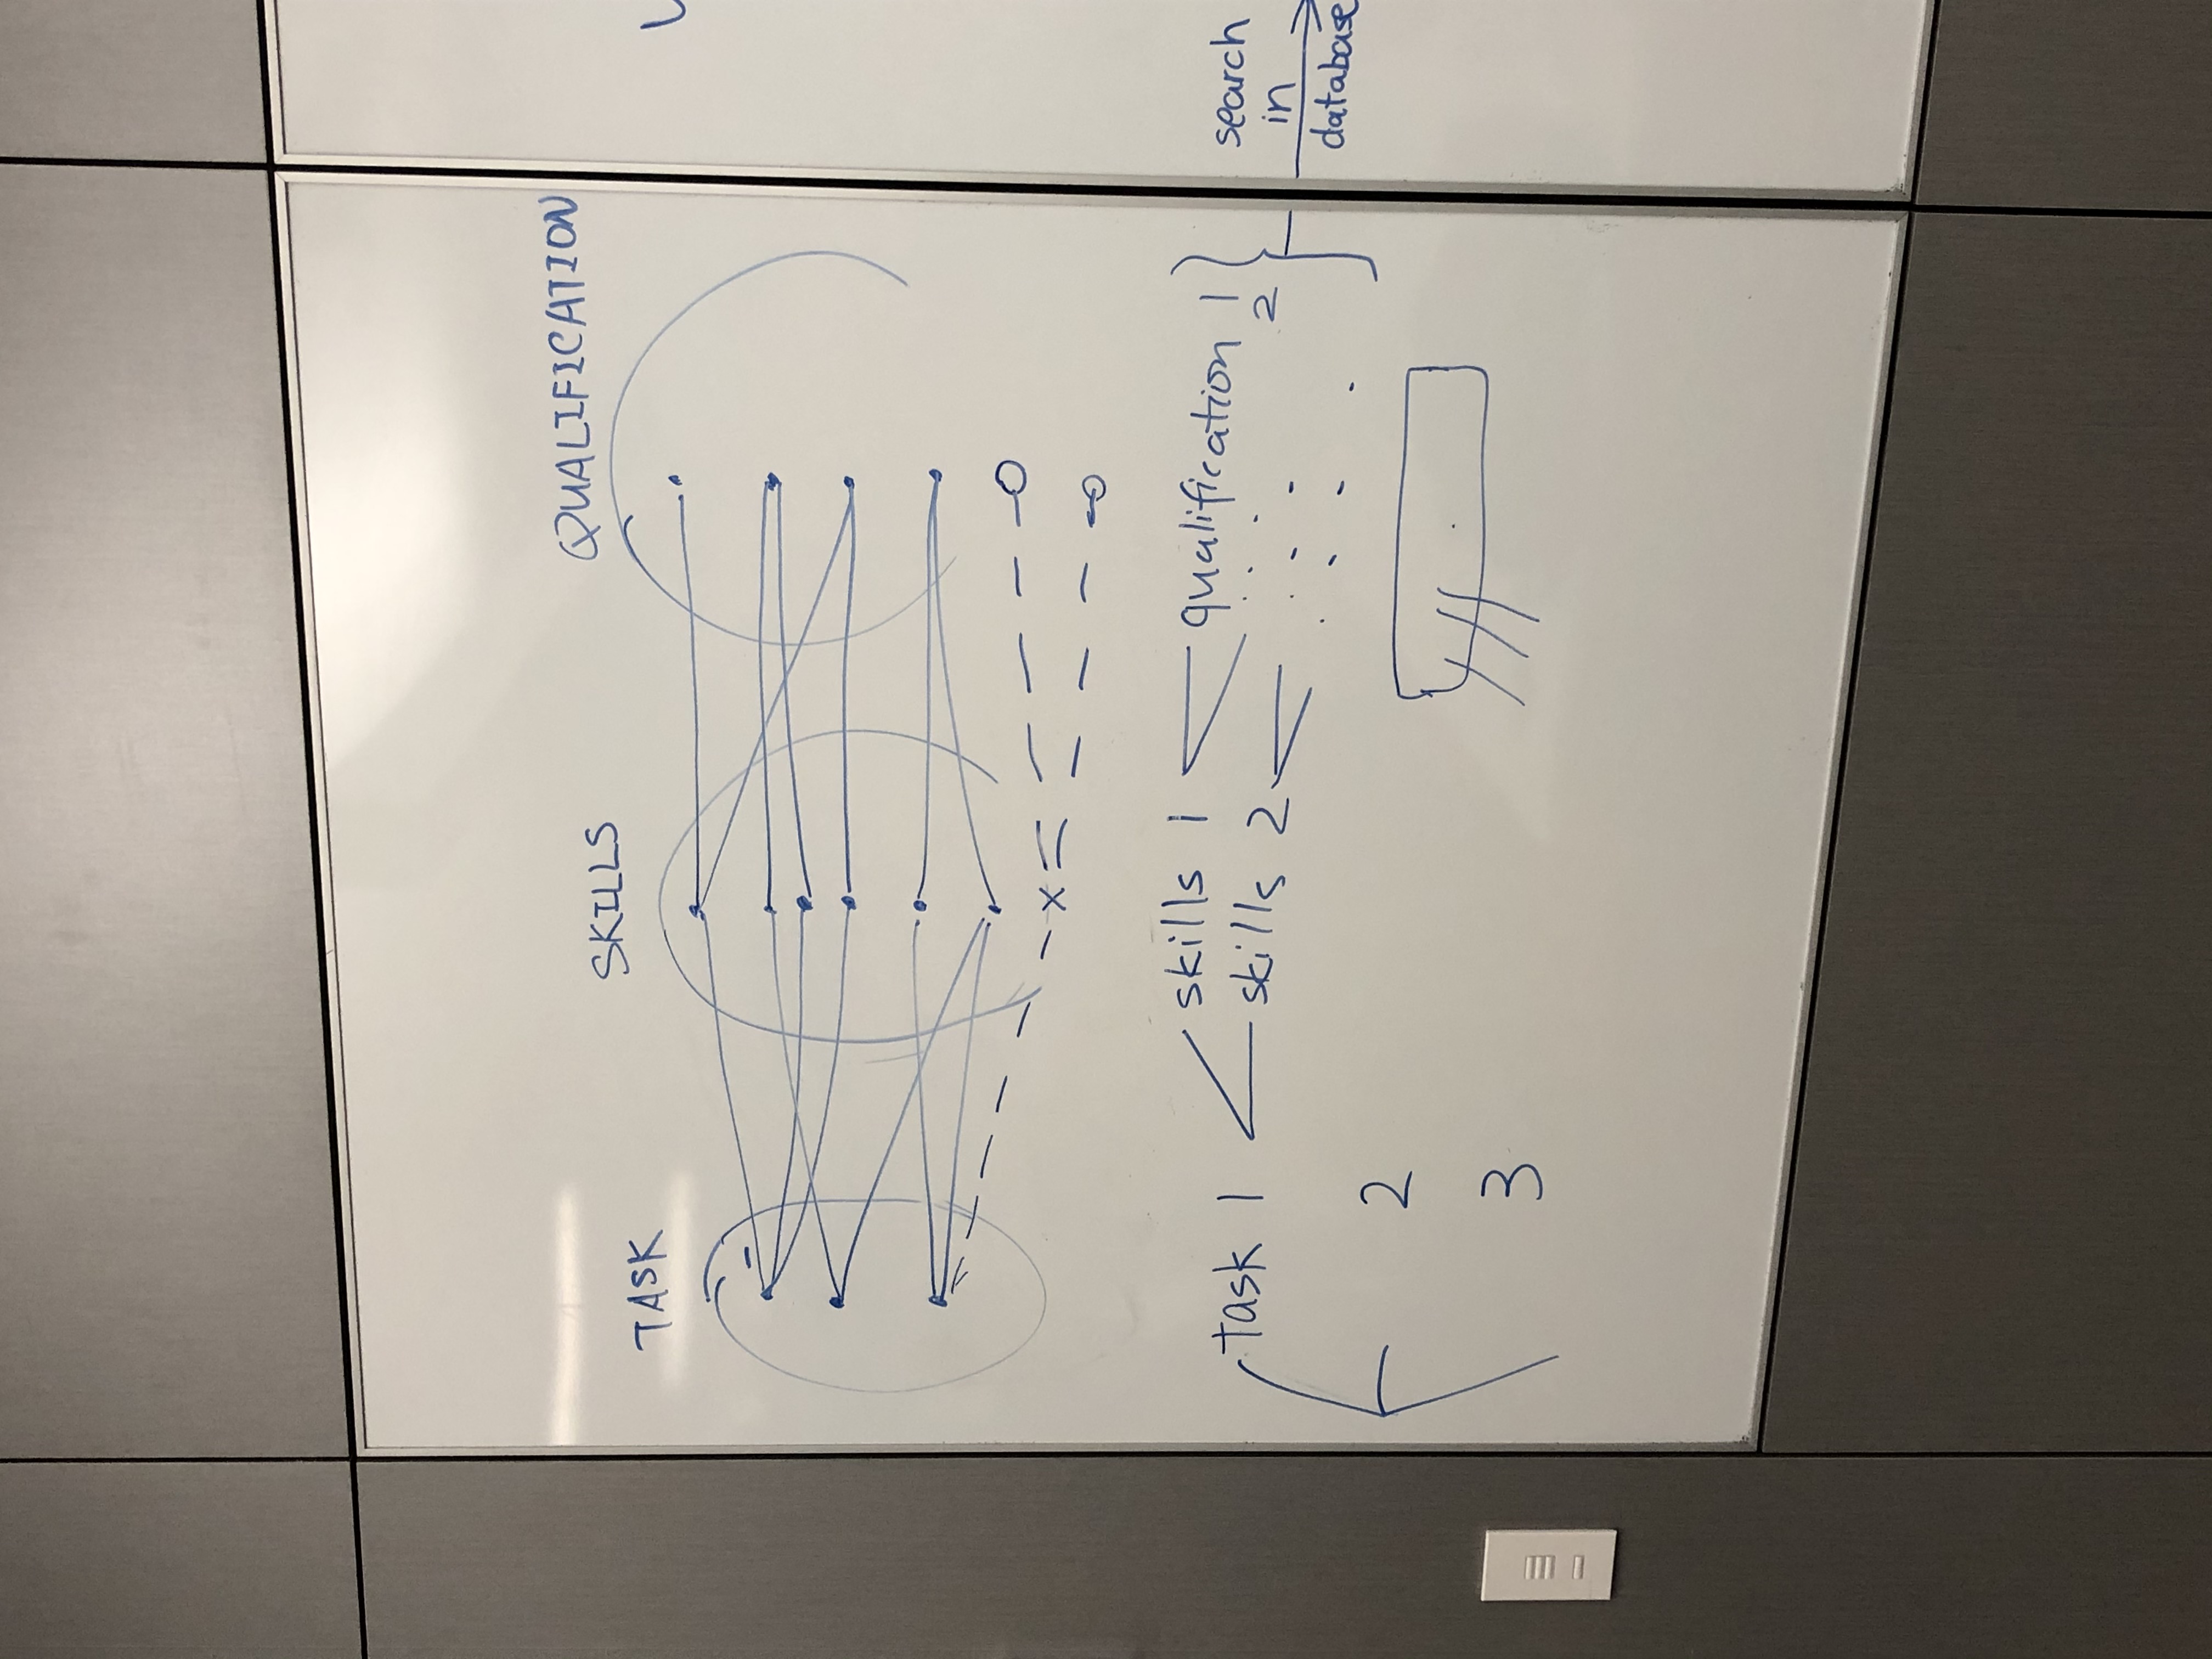 TASK
SKILLS
QUALIFICATION
task 1
skills 1
skills 2
qualification 1
2
2
3
search
in
database